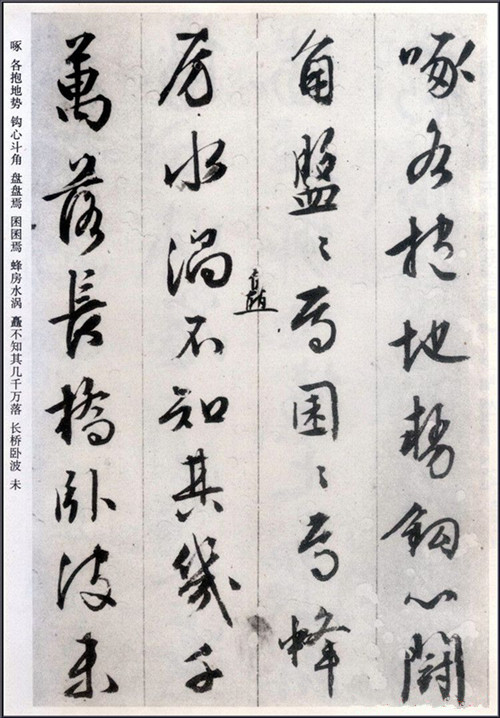 啄各抱地勢鈎心鬪
角盤〻焉囷〻焉蜂
房水渦不知其幾千
矗
萬落長橋臥波未
啄 各抱地势 钩心斗角 盘盘焉 囷囷焉 蜂房水涡 矗不知其几千万落 长桥卧波 未